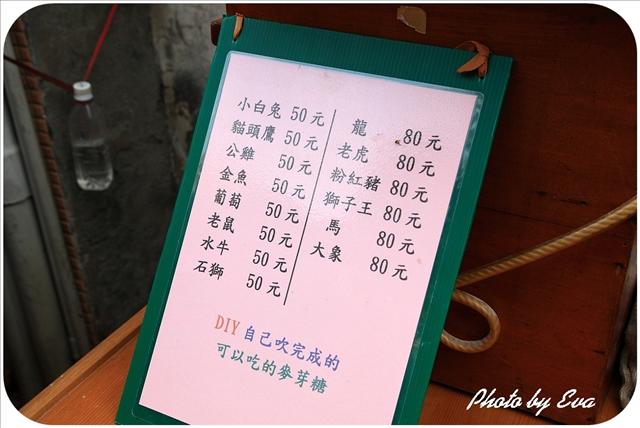 小白兔 50元
貓頭鷹 50元
公雞 50元
金魚 50元
葡萄 50元
老鼠 50元
水牛 50元
石獅 50元
龍 80元
老虎 80元
粉紅豬 80元
獅子王 80元
馬 80元
大象 80元
DIY 自己吹完成的
可以吃的麥芽糖
Photo by Eva